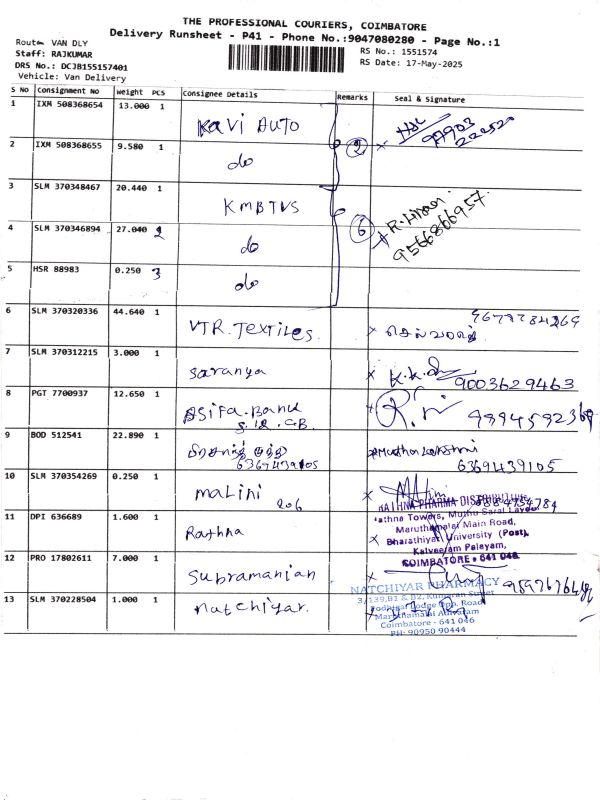 THE PROFESSIONAL COURIERS, COIMBATORE
Delivery Runsheet - P41 - Phone No.:9047080280 - Page No.:1
Route VAN DLY
Staff: RAJKUMAR
DRS No.: DCJB155157401
Vehicle: Van Delivery
RS No.: 1551574
RS Date: 17-May-2025
S NO Consignment No Weight PCS Consignee Details Remarks Seal & Signature
1 IXM 508368654 13.000 1 Kavi AUTO
2 IXM 508368655 9.580 1 do 2
3 SLM 370348467 20.440 1 KMBTVS
4 SLM 370346894 27.040 2 do 6 9566866957
5 HSR 88983 0.250 3 do
6 SLM 370320336 44.640 1 VTR.Textiles.
7 SLM 370312215 3.000 1 Saranya 9003629463
8 PGT 7700937 12.650 1 Asifa.Banu
9 BOD 512541 22.890 1 6369439105 Muthulakshmi 6369439105
10 SLM 370354269 0.250 1 malini 206
11 DPI 636689 1.600 1 Rathna
RATHNA PHARMA DISTRIBUTORS
Maruthamalai Main Road,
Bharathiyar University (Post),
Kalveeram Palayam,
COIMBATORE - 641 046
12 PRO 17802611 7.000 1 Subramanian
13 SLM 370228504 1.000 1 natchiyar.
NATCHIYAR PHARMACY
3/139,B1 & B2, Kumaran Street
Lodge Opp. Road
Maruthamalai Adivaram
Coimbatore - 641 046
PH- 90950 90444